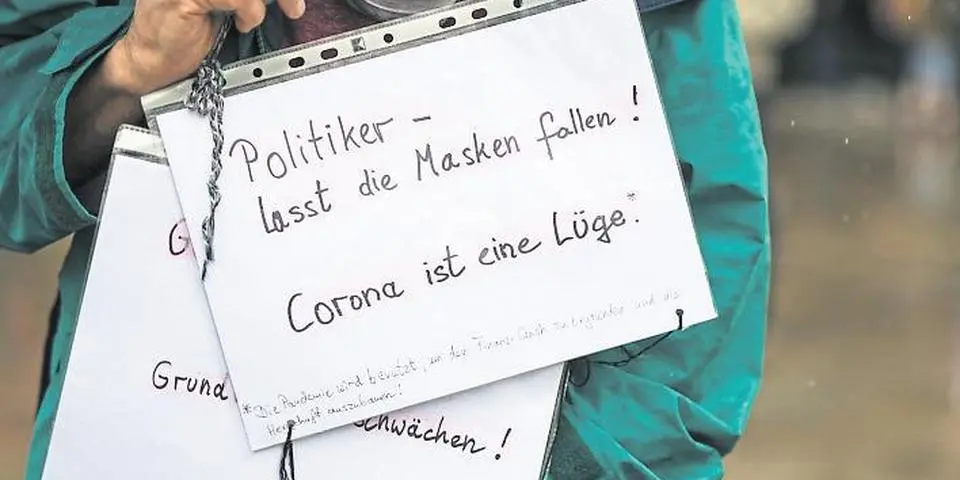 Politiker -
lasst die Masken fallen!
Corona ist eine Lüge.*
*Die Pandemie wird benutzt, um den Finanz-Crash zu begründen und die
Herrschaft auszubauen!
G
Grund
schwächen!